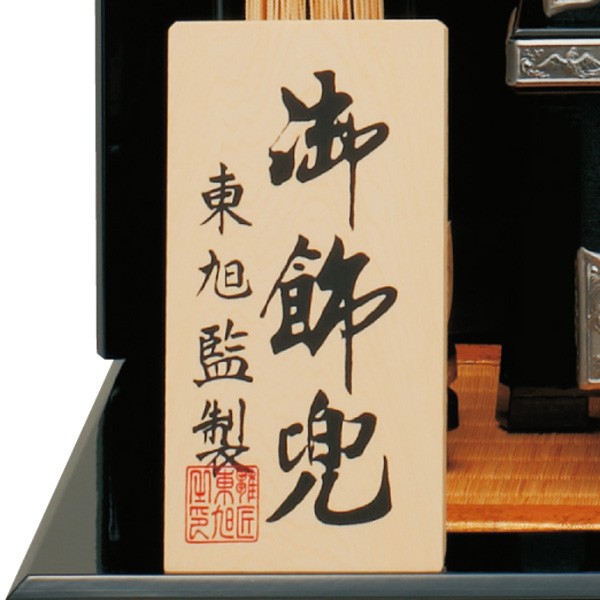 御飾兜
東旭監製
雛匠
東旭
之印